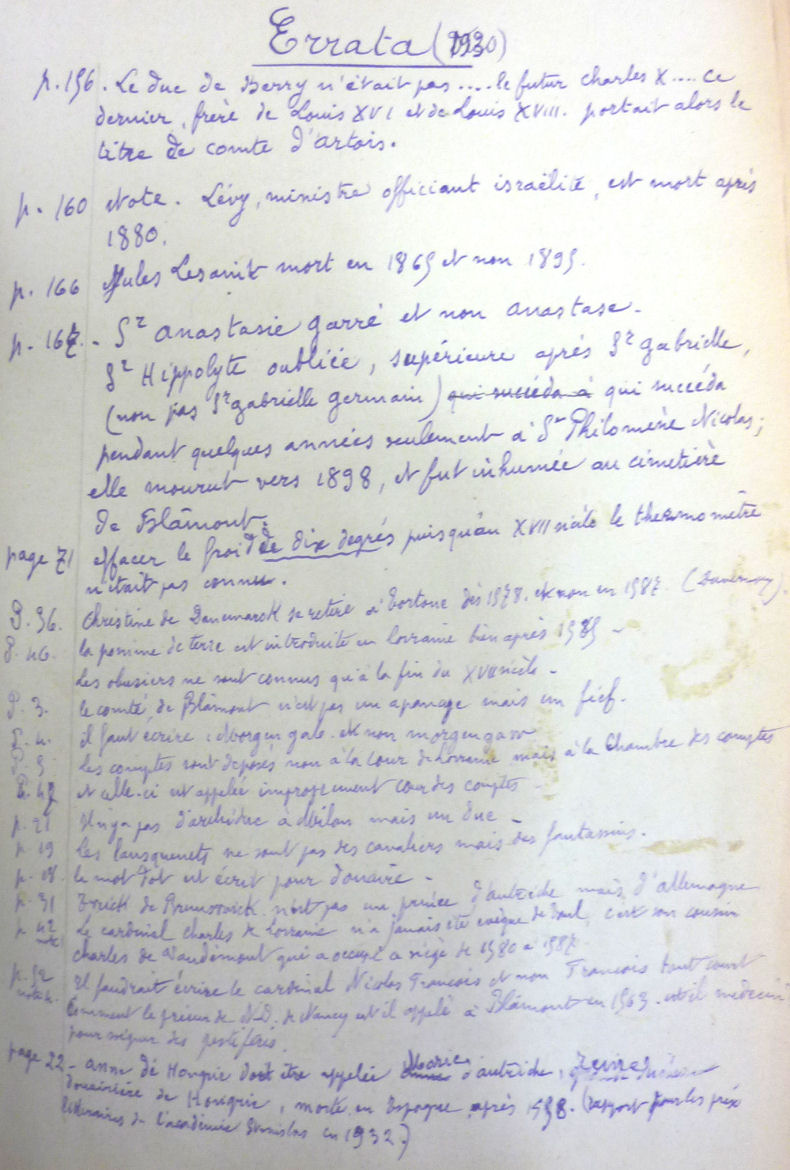 Errata (1930)
p. 156. Le duc de Berry n'était pas .... le futur charles X .... ce
dernier, frère de Louis XVI et de Louis XVIII. portait alors le
titre de comte d'artois.
p. 160 Note. Lévy, ministre officiant israëlite, est mort après
1880.
p. 166 Jules Lesaint mort en 1865 et non 1895.
p. 167. - Sr anastasie garré et non anastase.
Sr Hippolyte oubliée, supérieure après Sr gabrielle,
(non pas Sr gabrielle germain) qui succéda à qui succéda
pendant quelques années seulement à Sr Philomène Nicolas;
elle mourut vers 1898, et fut inhumée au cimetière
de Blâmont.
page 71 effacer le froid de dix degrés puisqu'au XVII siècle le thermomètre
n'était pas connu.
P. 36. Christine de Danemarck se retire à Tortone dès 1578. et non en 1587. (Davernoy).
P. 46. la pomme de terre est introduite en lorraine bien après 1585 -
Les obusiers ne sont connus qu'à la fin du XVII siècle -
P. 3. le comté de Blâmont n'est pas un apanage mais un fief.
P. 4. il faut écrire : Morgengabe. et non morgengaw
P. 5. les comptes sont déposés non à la Cour de Lorraine mais à la Chambre des comptes
P. 47 et celle-ci est appelée improprement cour des comptes -
p. 21 Il n'y a pas d'archiduc à Milan mais un duc -
p. 19 les lansquenets ne sont pas des cavaliers mais des fantassins.
p. 18. le mot Dot est écrit pour douaire -
p. 31 Erick de Brunswick n'est pas un prince d'autriche mais d'allemagne
p. 42 note Le cardinal charles de lorraine n'a jamais été évêque de Toul, c'est son cousin
charles de Vaudémont qui a occupé ce siège de 1580 à 1587
p. 52 note Il faudrait écrire le cardinal Nicolas François et non François tout court
Comment le prieur de N.D. de Nancy est-il appelé à Blâmont en 1563. est-il médecin
pour soigner des pestiférés.
page 22 - anne de Hongrie doit être appelée Marie d'autriche, reine
Douairière de Hongrie, morte en Espagne après 1558. (rapport pour les prix
littéraires de l'académie Stanislas en 1932.)